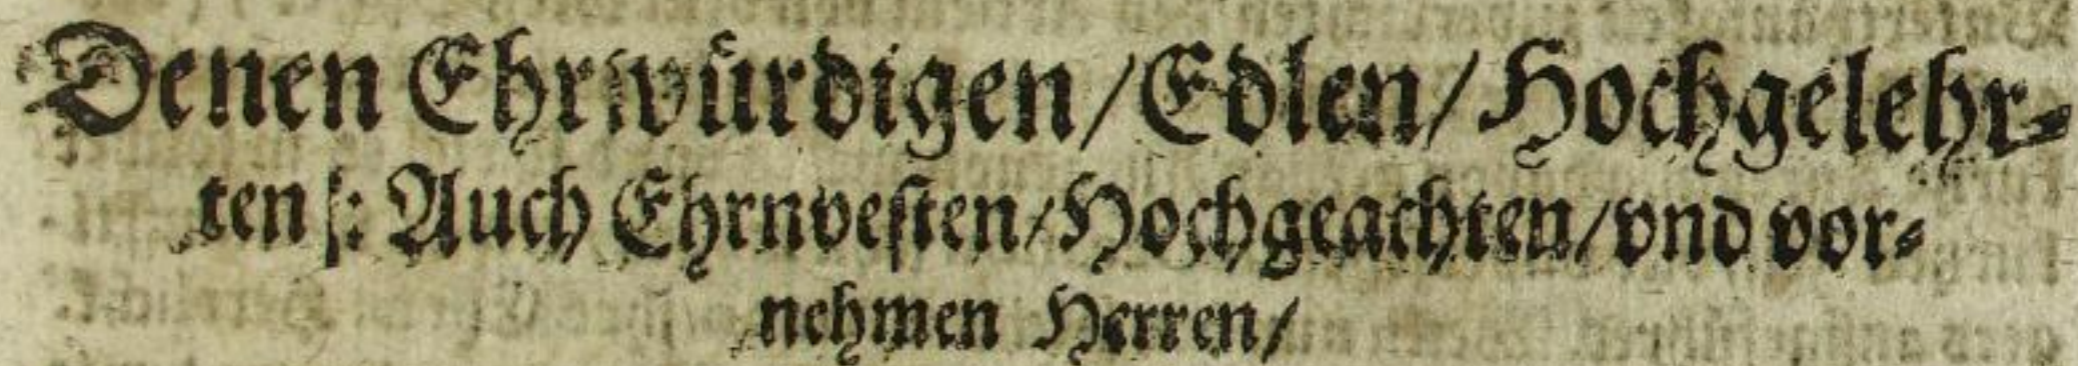 Denen Ehrwuͤrdigen / Edlen / Hochgelehr-
ten ꝛc: Auch Ehrnveſten / Hochgeachten / vnd vor-
nehmen Herren /